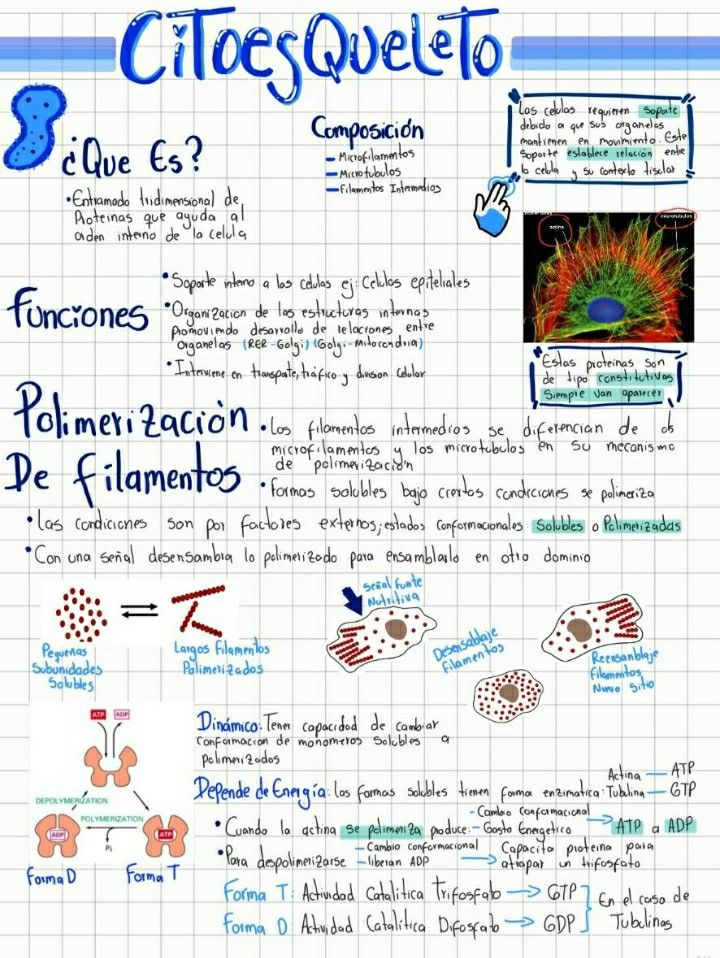 CiToesQueleTo
¿Que Es?
•Entramado tridimensional de
Proteinas que ayuda al
orden interno de la celula
Composición
– Microfilamentos
– Microtubulos
– Filamentos Intermedios
Las celulas requieren Soporte
debido a que sus organelos
mantienen en movimiento. Este
Soporte establece relación entre
la celula y su Contexto tisular
actina
microtubulos
Funciones
•Soporte interno a las celulas ej: Celulas epiteliales
•Organización de las estructuras internas
Promoviendo desarrollo de relaciones entre
organelos (RER-Golgi) (Golgi-Mitocondria)
•Interviene en transpote, tráfico y division celular
Estas proteinas son
de tipo constitutivas
Siempre Van aparecer
Polimerización
De filamentos
•Los filamentos intermedios se diferencian de los
microfilamentos y los microtubulos en su mecanismo
de polimerización
•Formas solubles bajo ciertas condiciones se polimeriza
•Las condiciones son por factores externos; estados conformacionales: Solubles o Polimerizadas
•Con una señal desensambla lo polimerizado para ensamblarlo en otro dominio
Pequeñas
Subunidades
Solubles
Largos Filamentos
Polimerizados
Señal Fuente
Nutritiva
Desensablaje
Filamentos
Reensanblaje
Filamentos
Nuevo Sitio
ATP ADP
DEPOLYMERIZATION
POLYMERIZATION
ADP
Pi
ATP
Forma D
Forma T
Dinámico: Tener capacidad de cambiar
conformación de monómeros Solubles a
polimerizados
Depende de Energía: Las formas solubles tienen forma enzimatica: Actina — ATP
Tubulina — GTP
•Cuando la actina Se polimeriza produce: – Cambio conformacional
– Gasto Energético → ATP a ADP
•Para despolimerizarse – Cambio conformacional
– liberan ADP → Capacita proteina para
atrapar un trifosfato
Forma T: Actividad Catalitica Trifosfato → GTP
Forma D: Actividad Catalítica Difosfato → GDP
En el caso de
Tubulinas